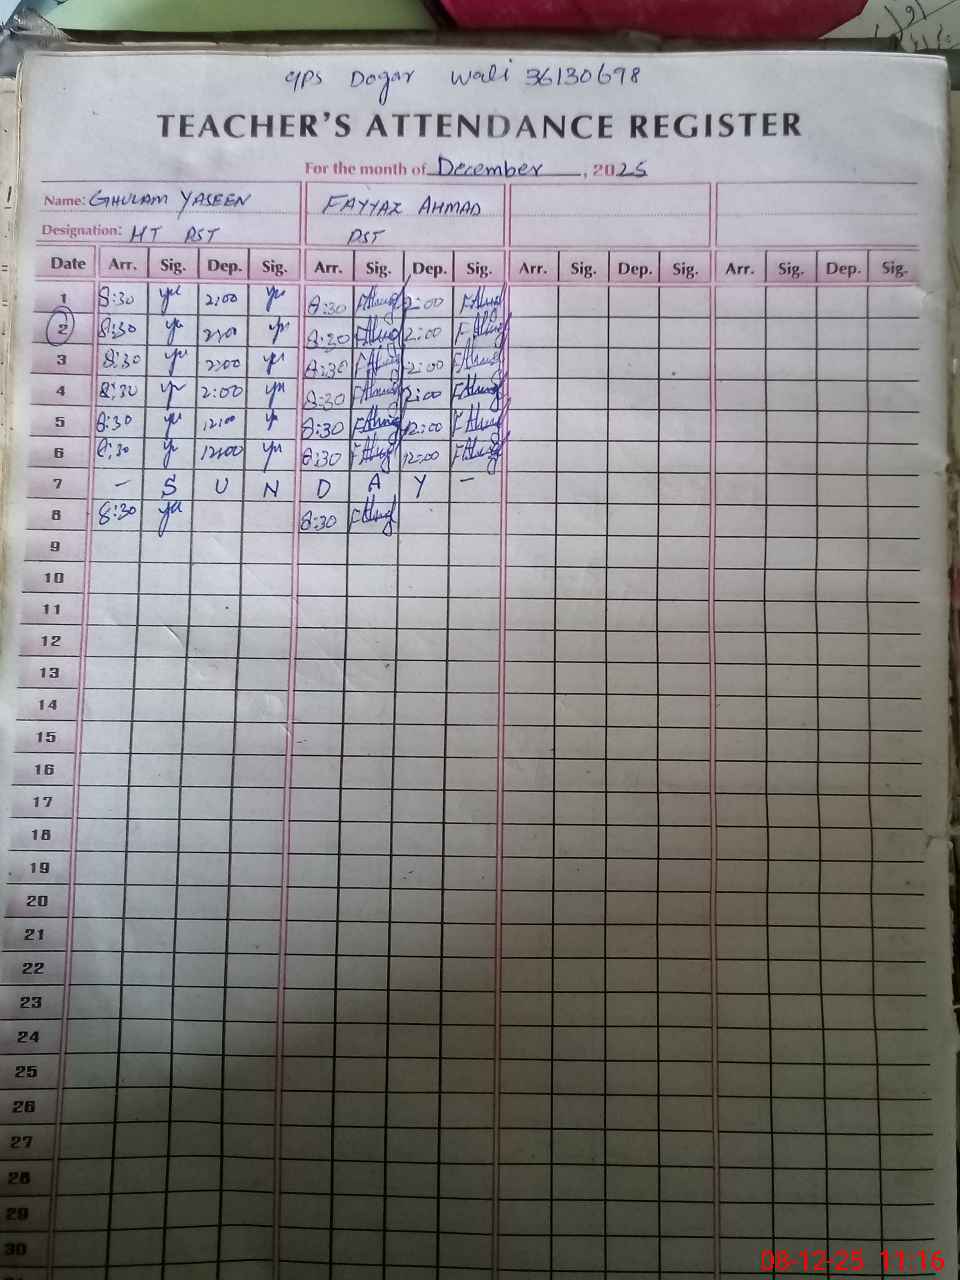 GPS Dogar Wali 36130698
TEACHER'S ATTENDANCE REGISTER
For the month of December, 2025
Name: GHULAM YASEEN FAYYAZ AHMAD
Designation: HT PST PST
Date Arr. Sig. Dep. Sig. Arr. Sig. Dep. Sig. Arr. Sig. Dep. Sig. Arr. Sig. Dep. Sig.
1 8:30 2:00 8:30 2:00
2 8:30 2:00 8:30 2:00
3 8:30 2:00 8:30 2:00
4 8:30 2:00 8:30 2:00
5 8:30 12:00 8:30 12:00
6 8:30 12:00 8:30 12:00
7 - S U N D A Y -
8 8:30 8:30
9
10
11
12
13
14
15
16
17
18
19
20
21
22
23
24
25
26
27
28
29
30
08-12-25 11:16